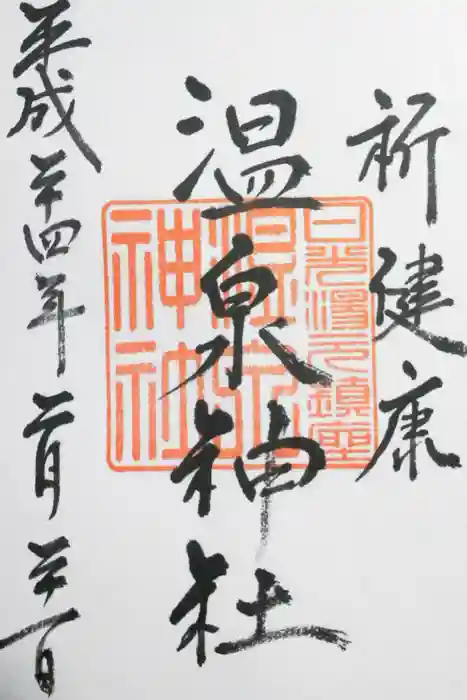 祈健康
温泉神社
平成廿四年二月廿一日
日光湯元鎮座
温泉
神社